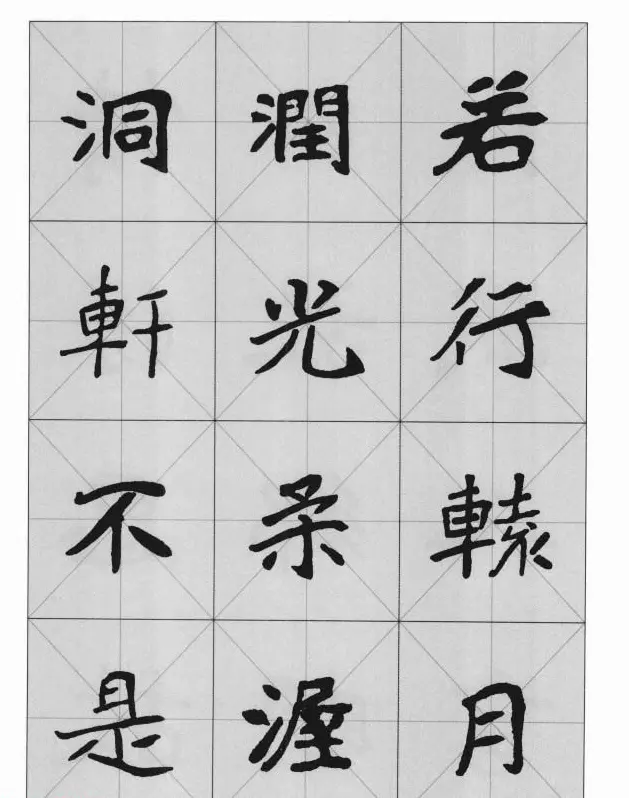 若行轅月
潤光柔渥
洞軒不是